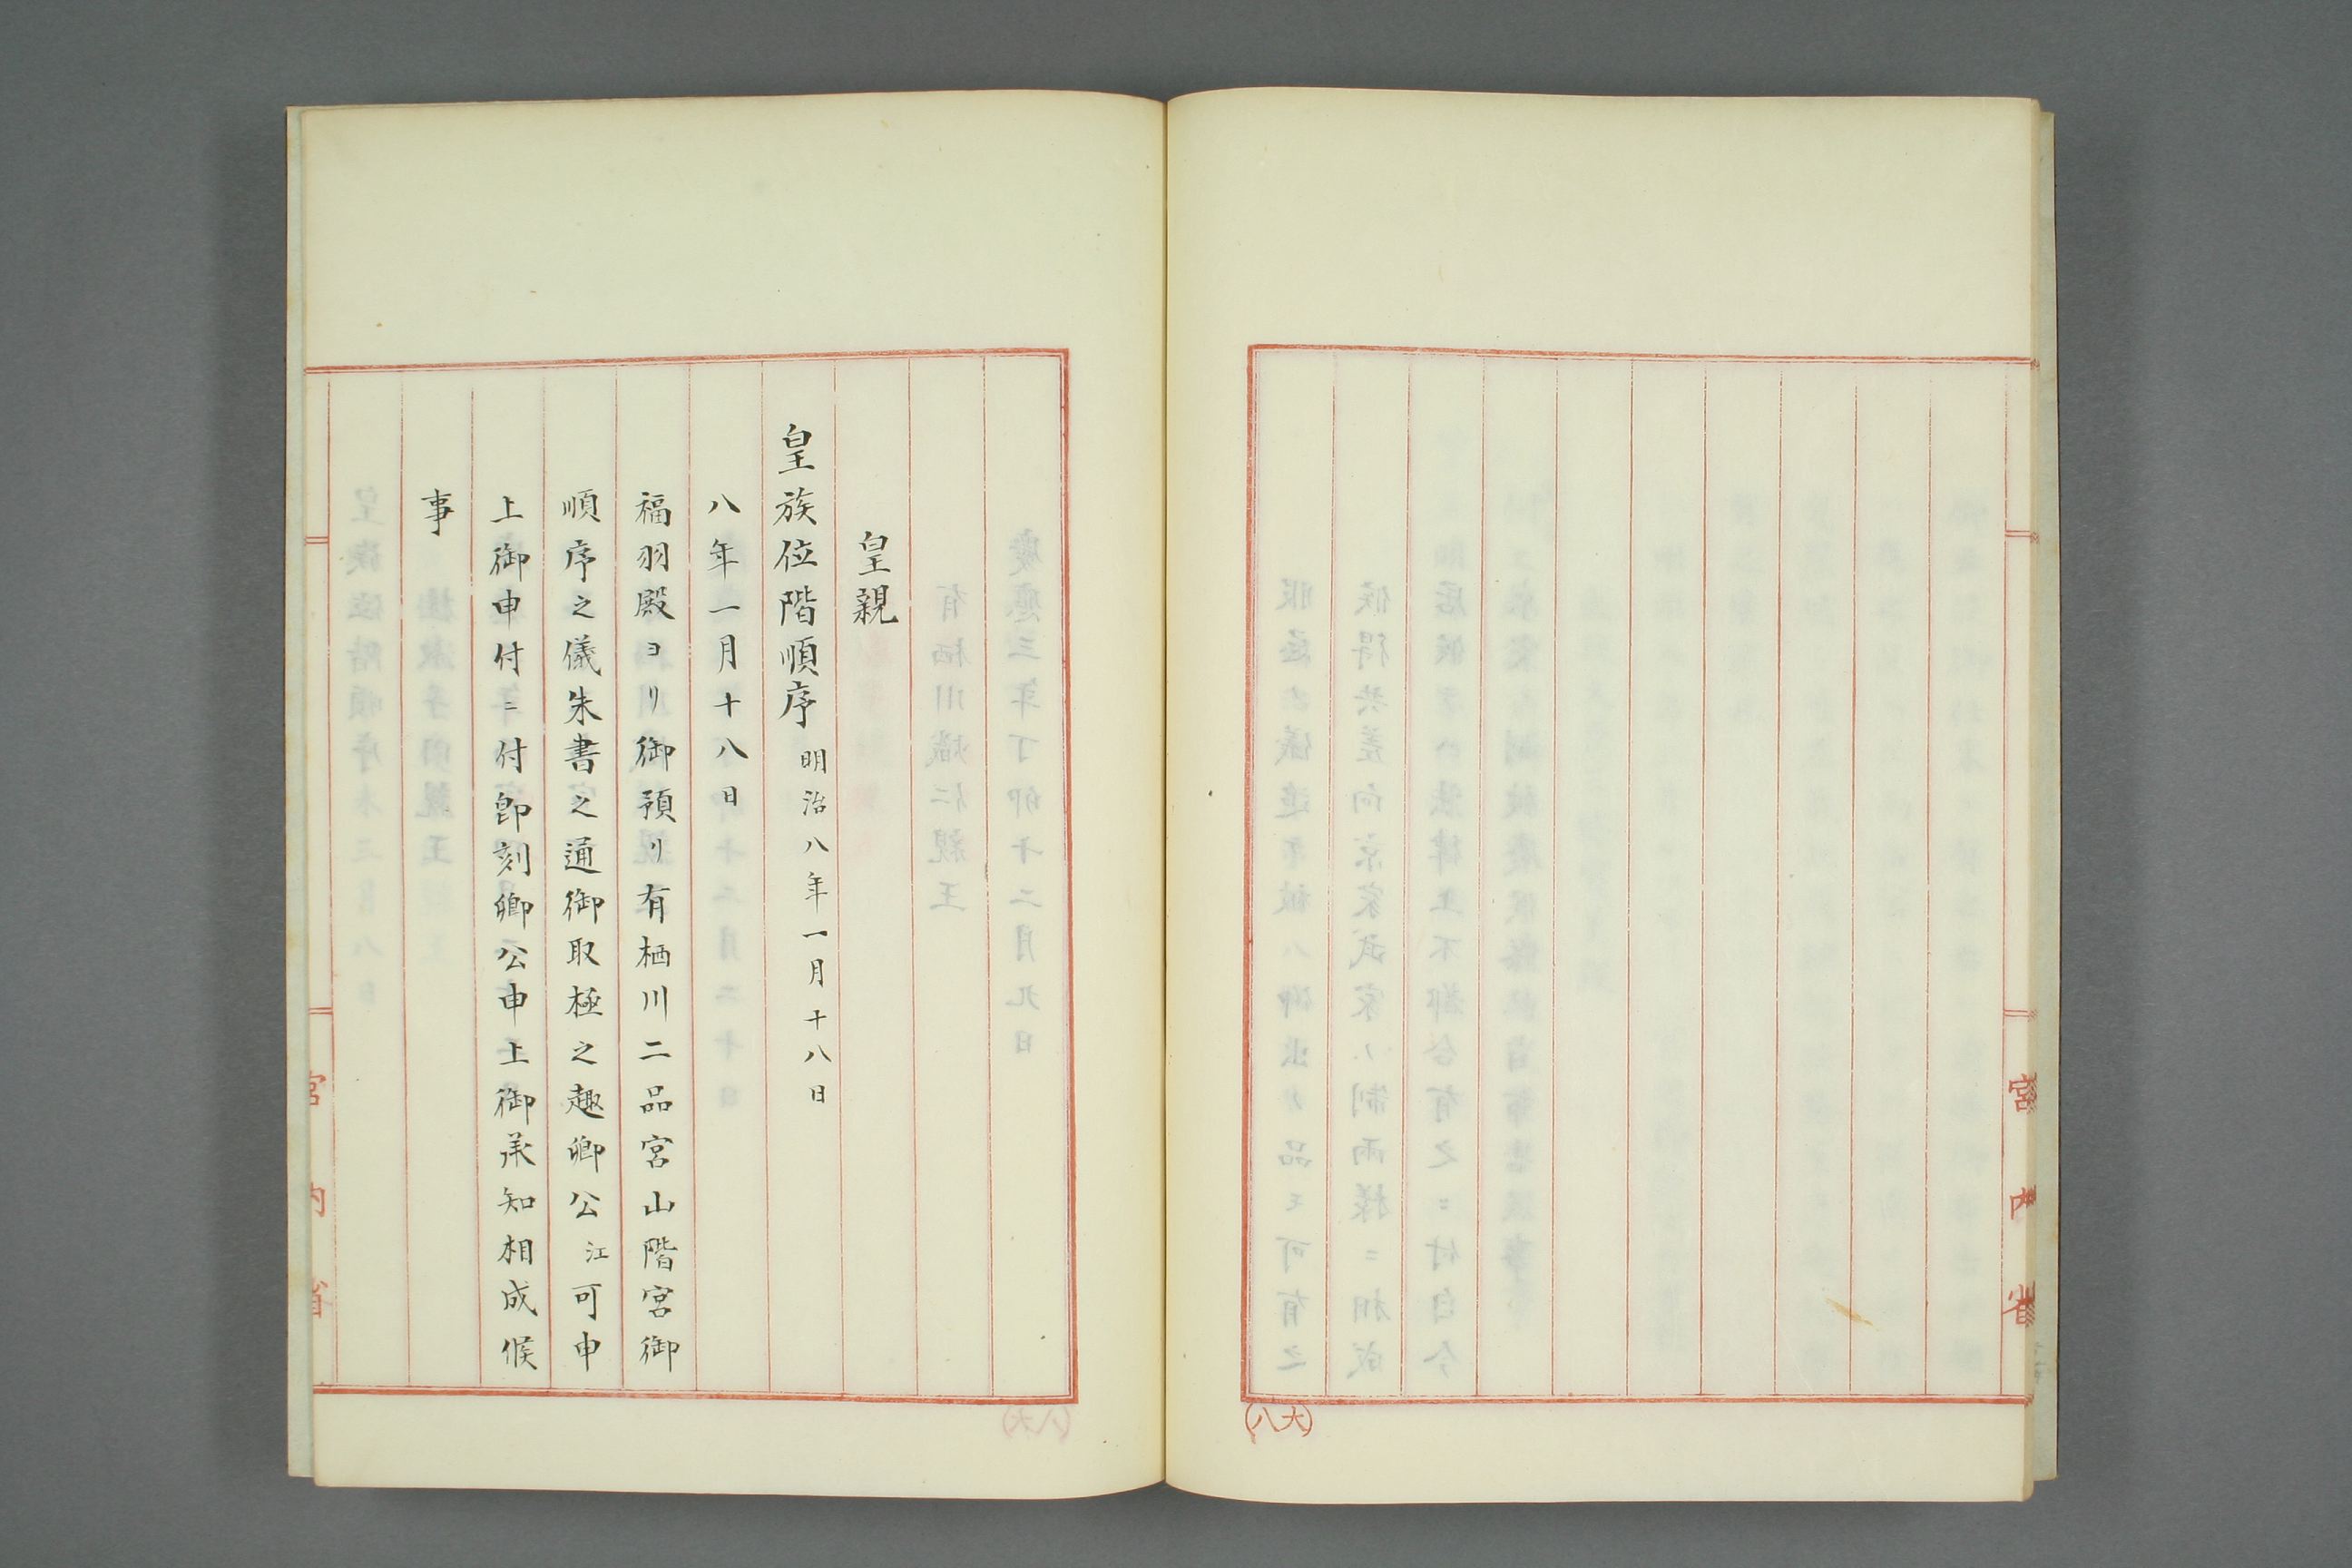 宮內省
(八大)
皇親
皇族位階順序 明治八年一月十八日
八年一月十八日
福羽殿ヨリ御預リ有栖川二品宮山階宮御
順序之儀朱書之通御取極之趣卿公江可申
上御申付ニ付即刻卿公申上御承知相成候
事
宮內省